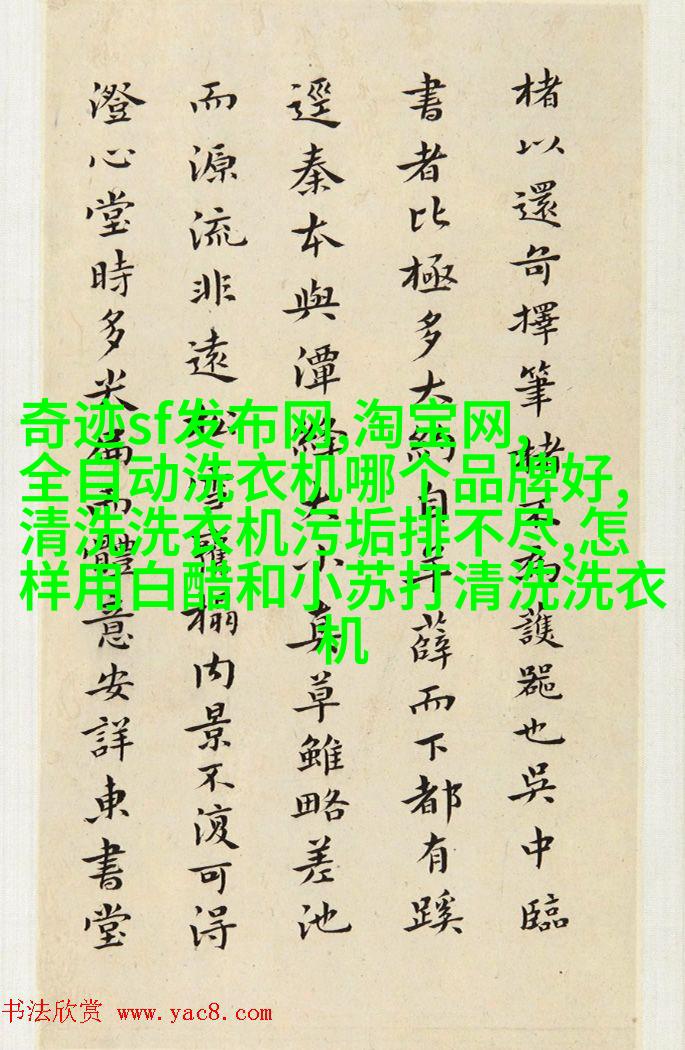 楮以還擇筆楮不為護器也吳中臨
書者比極多大約自羊薛而下都有蹊
逕秦本與潭絳大小真草雖略差池
而源流非遠松內景不復可得
澄心堂時多而體意安詳東書堂
奇迹sf发布网,淘宝网,
全自动洗衣机哪个品牌好,
清洗洗衣机污垢排不尽,怎
样用白醋和小苏打清洗洗衣
机
书法欣赏 www.yac8.com